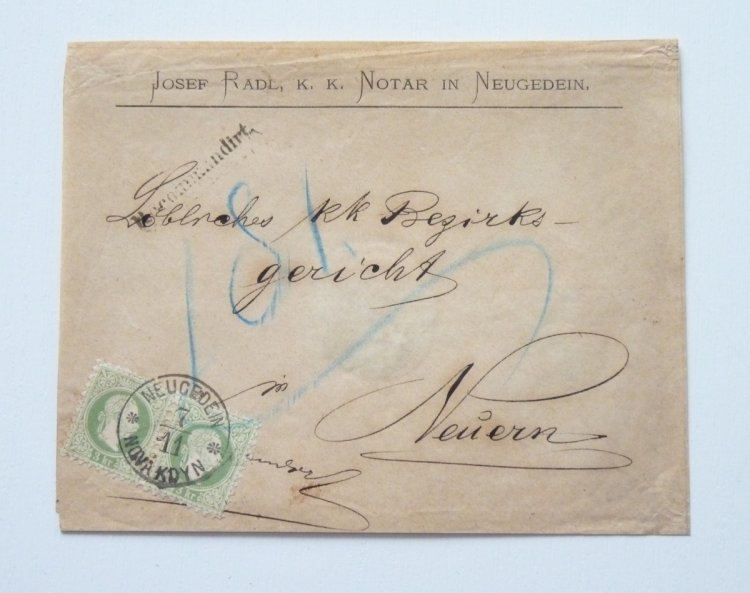 JOSEF RADL, K. K. NOTAR IN NEUGEDEIN.
Recommandirt
Löbliches kk Bezirks-
gericht
in
Neuern
NEUGEDEIN
7
11
NOVÁ KDYN
3 kr. 3 kr.